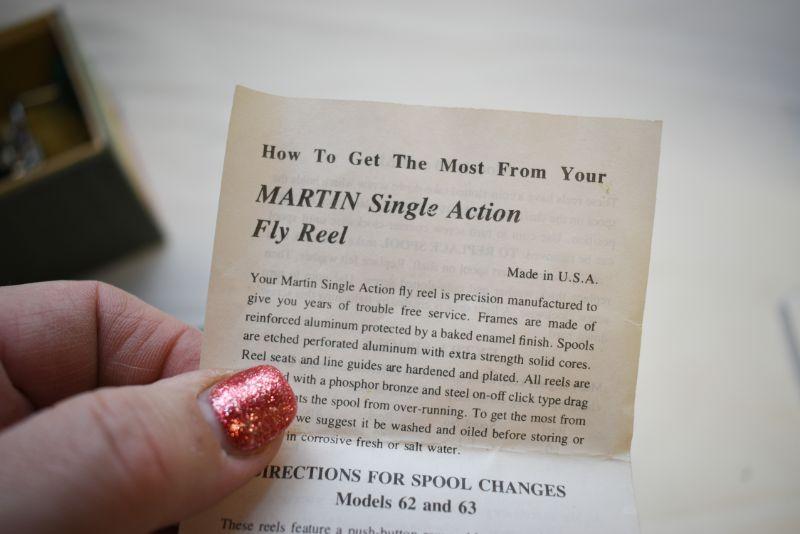 How To Get The Most From Your
MARTIN Single Action
Fly Reel
Made in U.S.A.
Your Martin Single Action fly reel is precision manufactured to
give you years of trouble free service. Frames are made of
reinforced aluminum protected by a baked enamel finish. Spools
are etched perforated aluminum with extra strength solid cores.
Reel seats and line guides are hardened and plated. All reels are
with a phosphor bronze and steel on-off click type drag
the spool from over-running. To get the most from
we suggest it be washed and oiled before storing or
in corrosive fresh or salt water.
DIRECTIONS FOR SPOOL CHANGES
Models 62 and 63
These reels feature a push-button